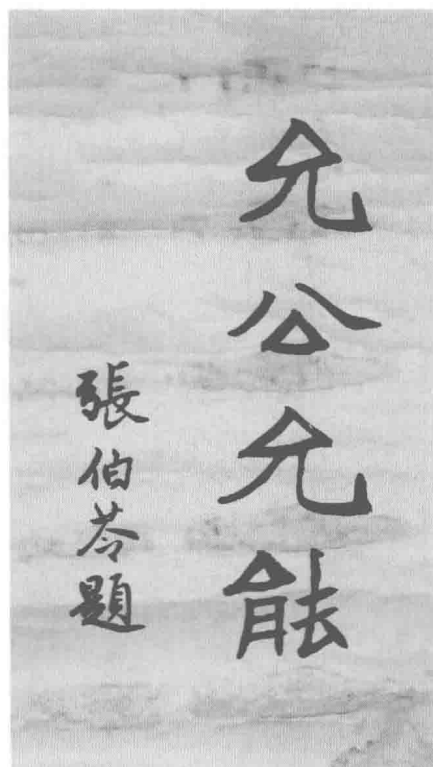 允公允能
張伯苓題